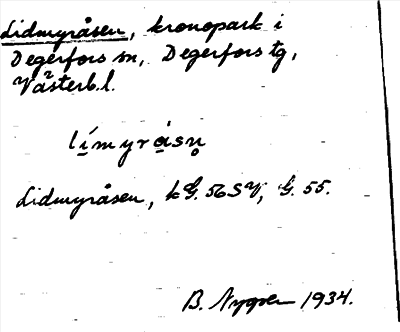 Lidmyråsen, kronopark i
Degerfors sn, Degerfors tg,
Västerb.l.
li̱myrå̱sn̥
Lidmyråsen, kG. 56SV, G. 55.
B. Nygren 1934.